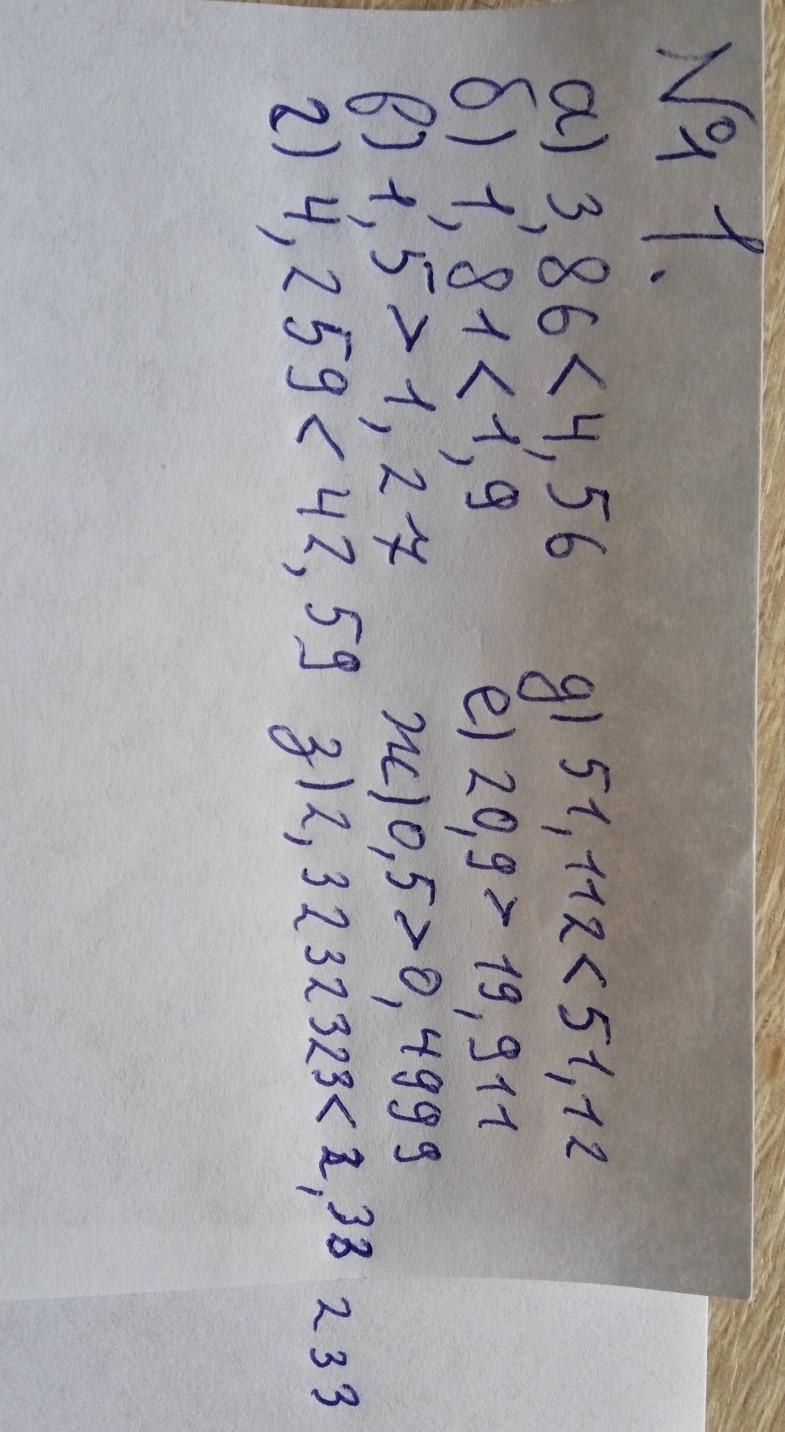 №1 1.
а) 3,86 < 4,56
б) 1,81 < 1,9
в) 1,5 > 1,27
г) 4,259 < 42,59
д) 51,112 < 51,12
е) 20,9 > 19,911
ж) 0,5 > 0,4999
з) 2,3232323 < 2,33 233